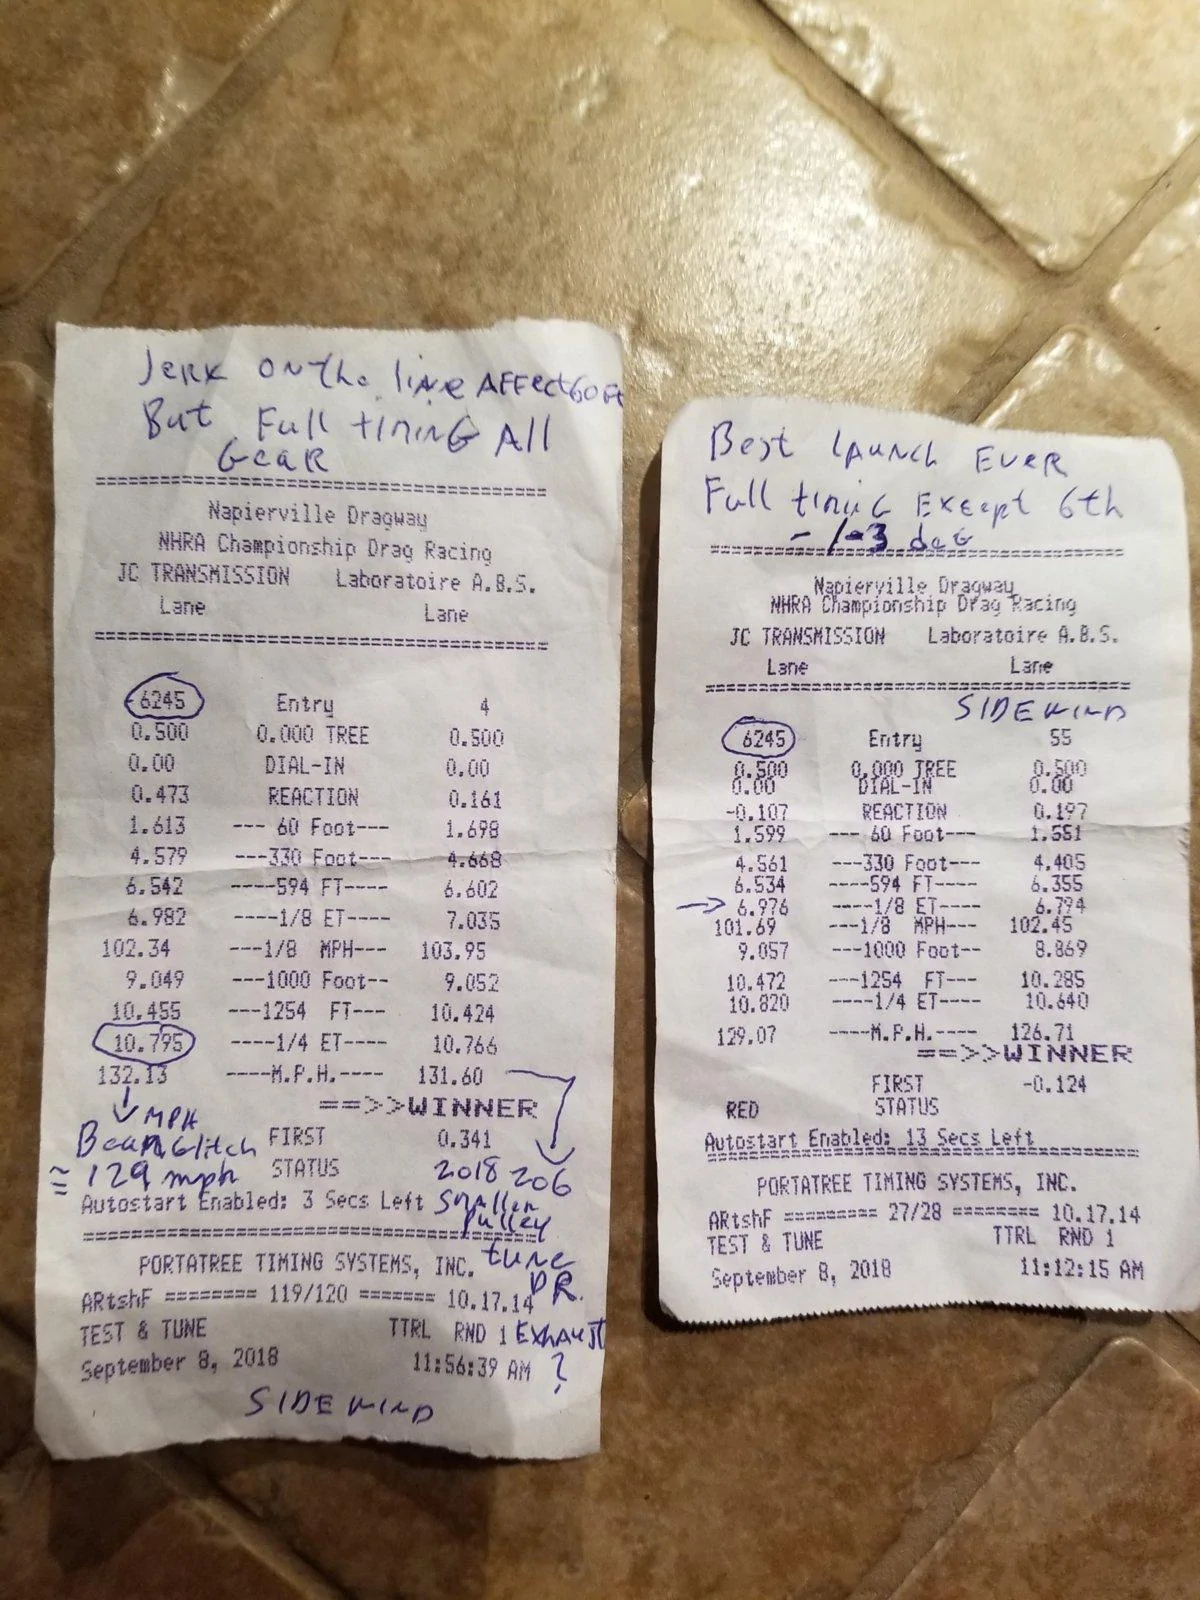 Jerk on the line affect 60 ft
But Full timing All
Gear
Napierville Dragway
NHRA Championship Drag Racing
JC TRANSMISSION Laboratoire A.B.S.
Lane Lane
6245 Entry 4
0.500 0.000 TREE 0.500
0.00 DIAL-IN 0.00
0.473 REACTION 0.161
1.613 --- 60 Foot--- 1.698
4.579 ---330 Foot--- 4.668
6.542 ----594 FT---- 6.602
6.982 ----1/8 ET---- 7.035
102.34 ---1/8 MPH--- 103.95
9.049 ---1000 Foot-- 9.052
10.455 ---1254 FT--- 10.424
10.795 ----1/4 ET---- 10.766
132.13 ----M.P.H.---- 131.60
==>>WINNER
MPH
Beam Glitch FIRST 0.341
≈ 129 mph STATUS 2018 206
Autostart Enabled: 3 Secs Left Smaller
Pulley
PORTATREE TIMING SYSTEMS, INC. tune
DR.
ARtshF ======== 119/120 ======= 10.17.14
TEST & TUNE TTRL RND 1 Exhaust
September 8, 2018 11:56:39 AM ?
SIDEWIND
Best launch Ever
Full timing Except 6th
-1-3 deg
Napierville Dragway
NHRA Championship Drag Racing
JC TRANSMISSION Laboratoire A.B.S.
Lane Lane
SIDEWIND
6245 Entry 55
0.500 0.000 TREE 0.500
0.00 DIAL-IN 0.00
-0.107 REACTION 0.197
1.599 --- 60 Foot--- 1.551
4.561 ---330 Foot--- 4.405
6.534 ----594 FT---- 6.355
→ 6.976 ----1/8 ET---- 6.794
101.69 ---1/8 MPH--- 102.45
9.057 ---1000 Foot-- 8.869
10.472 ---1254 FT--- 10.285
10.820 ----1/4 ET---- 10.640
129.07 ----M.P.H.---- 126.71
==>>WINNER
FIRST -0.124
RED STATUS
Autostart Enabled: 13 Secs Left
PORTATREE TIMING SYSTEMS, INC.
ARtshF ========= 27/28 ======== 10.17.14
TEST & TUNE TTRL RND 1
September 8, 2018 11:12:15 AM